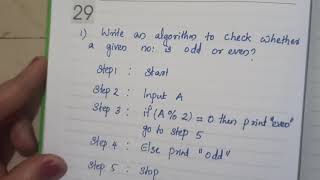 29
1) Write an algorithm to check whether
a given no: is odd or even?
Step1 : Start
Step 2 : Input A
Step 3 : if (A % 2) = 0 then print "even"
go to step 5
Step 4 : Else print "odd"
Step 5 : Stop